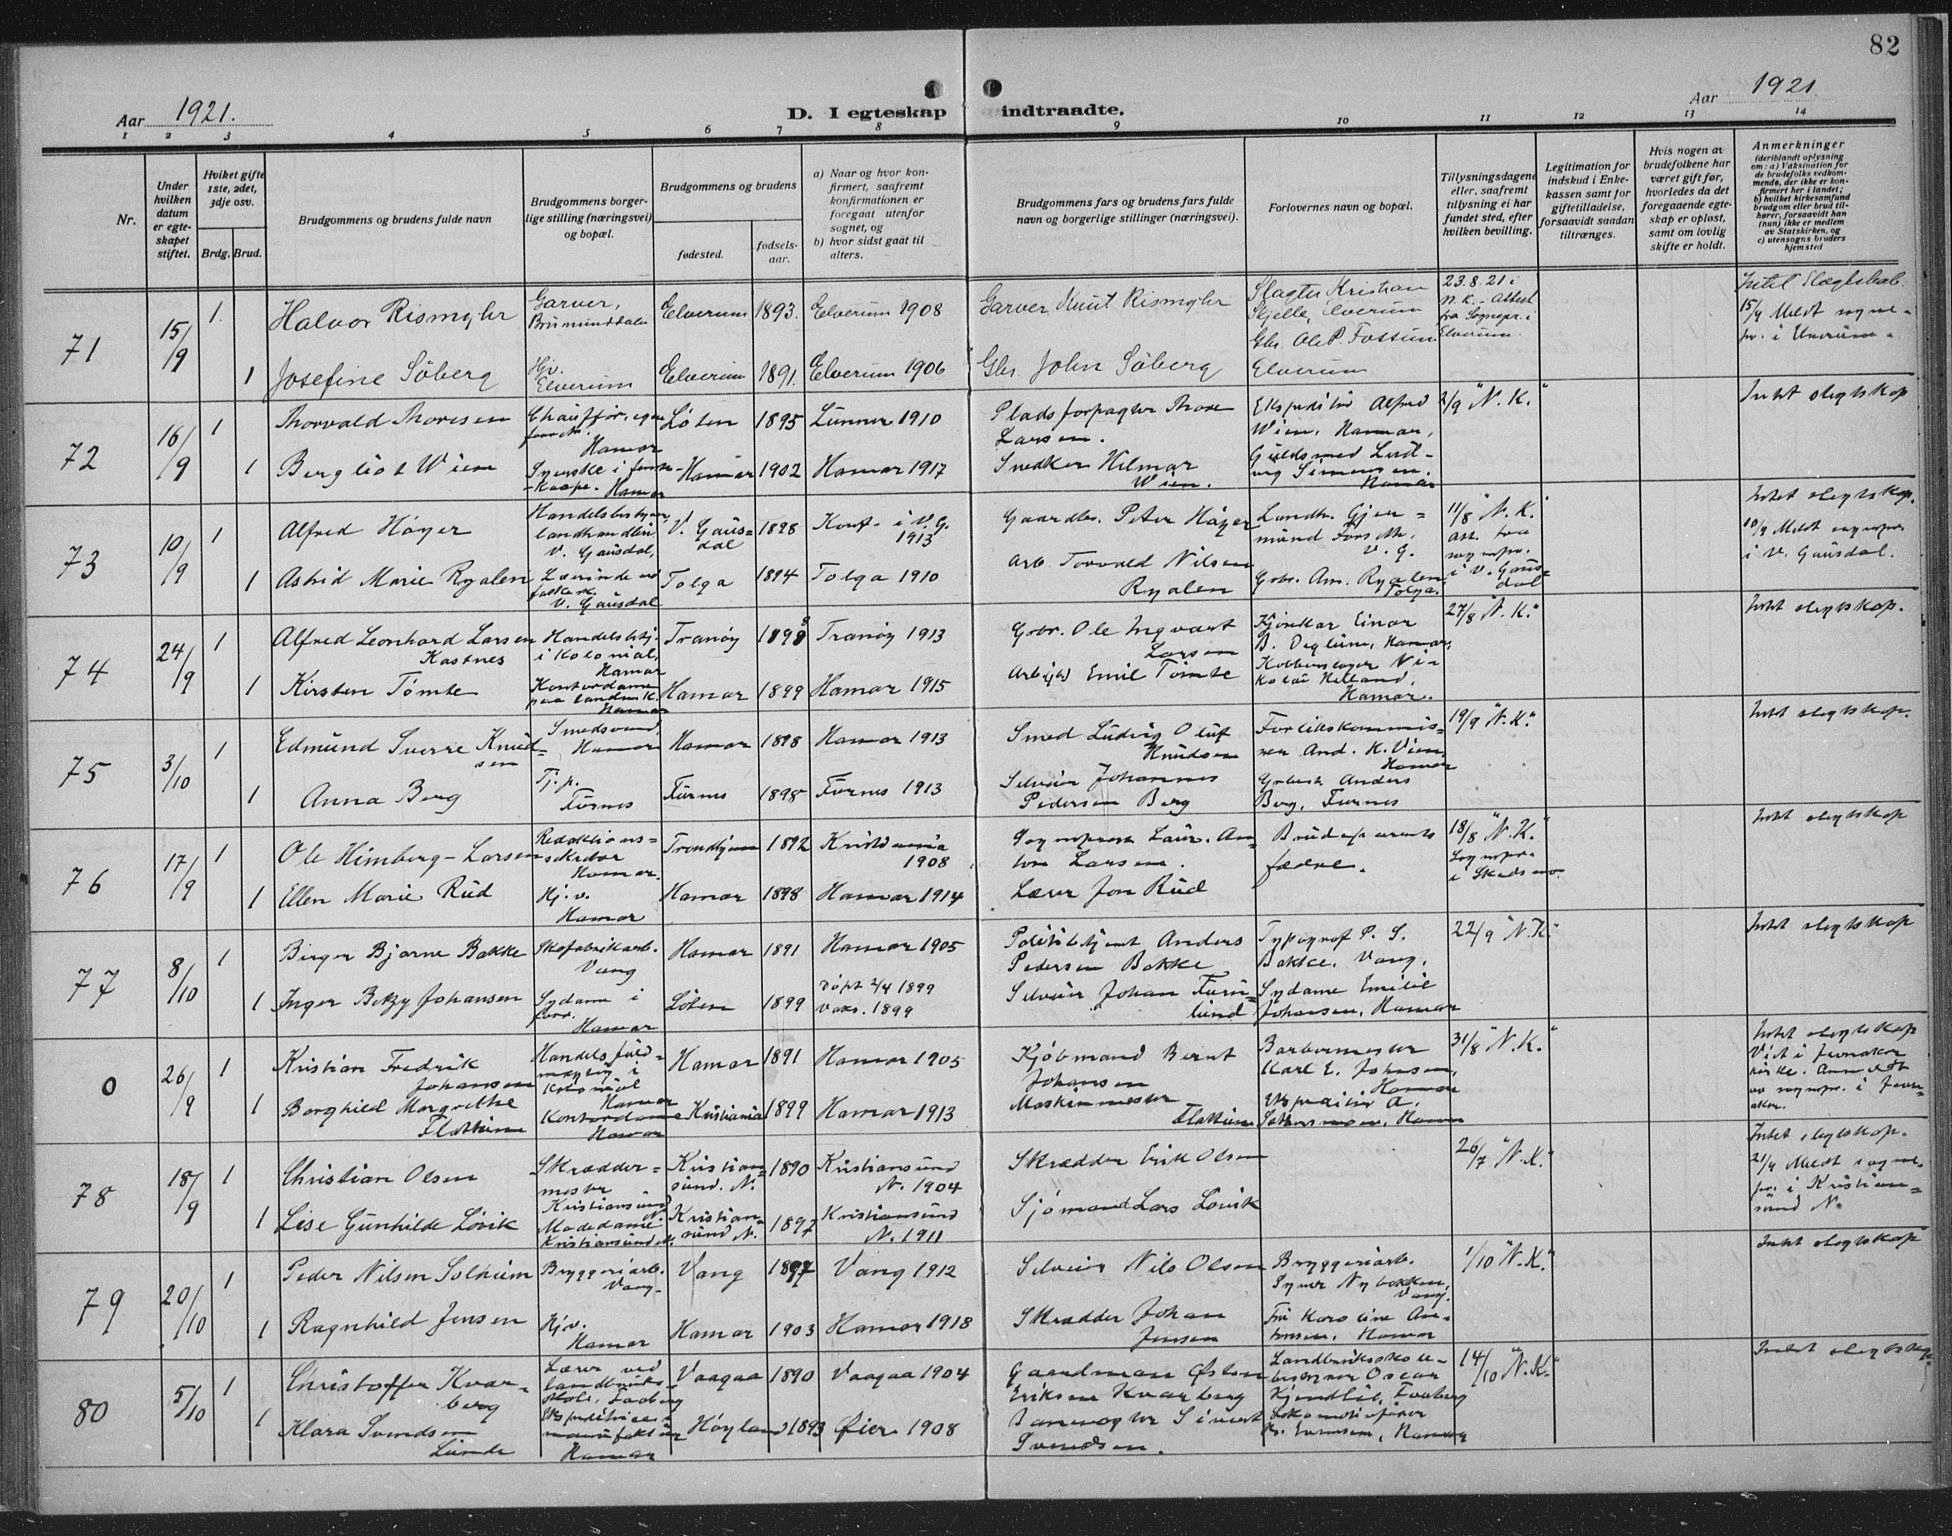 82
Aar 1921.
D. I egteskap indtraadte.
Aar 1921
1 2 3 4 5 6 7 8 9 10 11 12 13 14
Nr.
Under hvilken datum er egteskapet stiftet.
Hvilket gifte 1ste, 2det, 3dje osv.
Brdg. Brud.
Brudgommens og brudens fulde navn
Brudgommens borgerlige stilling (næringsvei) og bopæl.
Brudgommens og brudens
fødested.
fødselsaar.
a) Naar og hvor konfirmert, saafremt konfirmationen er foregaat utenfor sognet, og
b) hvor sidst gaat til alters.
Brudgommens fars og brudens fars fulde navn og borgerlige stillinger (næringsvei).
Forlovernes navn og bopæl.
Tillysningsdagene eller, saafremt tillysning ei har fundet sted, efter hvilken bevilling.
Legitimation for indskud i Enkekassen samt for giftetilladelse, forsaavidt saadan tiltrænges.
Hvis nogen av brudefolkene har været gift før, hvorledes da det foregaaende egteskap er opløst, samt om lovlig skifte er holdt.
Anmerkninger
(deriblandt oplysning om: a) Vaksination for de brudefolks vedkommende, der ikke er konfirmert her i landet; b) hvilket kirkesamfund brudgom eller brud tilhører, forsaavidt han (hun) ikke er medlem av Statskirken, og c) utensogns bruders hjemsted
71 15/9 1. Halvor Rismyhr Garver, Brumunddalen Elverum 1893. Elverum 1908 Garver Knut Rismyhr Slagter Kristian Skjelle, Elverum 23.8.21 i N.K. - Attest fra Sognepr. i Elverum. Intet Slægtskab. 15/9 Meldt sognepr. i Elverum.
1 Josefine Söberg Hjv. Elverum Elverum 1891. Elverum 1906 Gbr. John Söberg Gbr. Ole P. Fossum Elverum
72 16/9 1 Thorvald Thoresen Chauffør, egen forretn. Hamar Løten 1895 Lunner 1910 Pladsforpagter Thore Larsen. Ekspeditör Alfred Wien, Hamar, 2/9 "N.K." Intet slegtskap
1 Bergliot Wien Syerske i Hamar Hamar 1902 Hamar 1917 Snedker Hilmar Wien. Guldsmed Ludvig Simensen. Hamar
73 10/9 1 Alfred Höyer Handelsbestyrer landhandleri V. Gausdal, V. Gausdal 1898 Konf. i V. G. 1913 Gaardbr. Peter Höyer Landh. Gjermund Forseth, V. G. 11/8 "N.K." att. fra sognepr. i V. Gausdal Intet slegtskap. 10/9 Meldt sognepr. i V. Gausdal.
1 Astrid Marie Ryalen Lærerinde V. Gausdal Tolga 1894 Tolga 1910 Arb. Torvald Nilsen Ryalen Gbr. Am. Ryalen, Tolga.
74 24/9 1 Alfred Leonhard Larsen Kastnes Handelsbestj. i kolonial, Hamar Tranöy 1898 Tranöy 1913 Gbr. Ole Ingvart Larsen Einar B. Deglum, Hamar, 27/8 "N.K." Intet slegtskap.
1 Kirsten Tömte Kontordame paa landbr.k. Hamar Hamar 1899 Hamar 1915 Arb(s) Emil Tömte Kobberslager Nikolai Helland, Hamar.
75 3/10 1 Edmund Sverre Knudsen Smedsvend, Hamar Hamar 1898 Hamar 1913 Smed Ludvig Oluf Knudsen Forlikskommissær And. K. Vien, Hamar 19/9 "N.K." Intet slegtskap.
1 Anna Berg Tj.p. Furnes Furnes 1898 Furnes 1913 Selveier Johannes Pedersen Berg Anders Berg, Furnes
76 17/9 1 Ole Himberg-Larsen Redaktionssekretær Hamar. Trondhjem 1892 Kristiania 1908 Sogneprest Laur. Anton Larsen. Brudeparrets fædre. 18/8 "N.K." Sognepr. i Skedsmo. Intet slegtskap
1 Ellen Marie Rud Hj.v. Hamar Hamar 1898 Hamar 1914 Lærer Jon Rud
77 8/10 1 Birger Bjarne Bakke Skofabrikarb. Vang Hamar 1891 Hamar 1905 Politibetjent Anders Pedersen Bakke Typograf P. S. Bakke, Vang, 22/9 "N.K." Intet slegtskap
1 Inger Betzy Johansen Sydame i forr. Hamar Löten 1899 döpt 2/4 1899 vaks. 1899 Selveier Johan Furulund Sydame Emilie Johansen, Hamar
0 26/9 1 Kristian Fredrik Johansen Handelsfuldmægtig i kolonial Hamar Hamar 1891 Hamar 1905 Kjöbmand Bernt Johansen Barbermester Karl E. Johnsen, Hamar 31/8 "N.K." Intet slegtskap Viet i kirke. Anmeldt av sognepr. i
1 Borghild Margrethe Flattum Kontordame Hamar Kristiania 1899 Hamar 1913 Maskinmester Flattum Ekspeditör A. Hamar
78 18/9 1 Christian Olsen Skræddermester Kristiansund N. Kristiansund. N. 1890 Kristiansund N. 1904 Skrædder Erik Olsen 26/7 "N.K." Intet slegtskap. 21/9 Meldt sognepr. i Kristiansund N.
1 Lise Gunhilde Lövik Modedame Kristiansund N. Kristiansund N. 1897 Kristiansund N. 1911 Sjömand Lars Lövik
79 20/10 1 Peder Nilsen Solheim Bryggeriarb. Vang. Vang 1897 Vang 1912 Selveier Nils Olsen Bryggeriarb. Syver Nybakken, Vang. 1/10 "N.K." Intet slegtskap
1 Ragnhild Jensen Hj.v. Hamar Hamar 1903 Hamar 1918 Skrædder Johan Jensen Fru Karoline Antonsen, Hamar
80 5/10 1 Christoffer Kvarberg Lærer ved landbruksskole, Faaberg Vaagaa 1890 Vaagaa 1904 Gaardman Østen Eriksen Kvarberg Landbruksskolebestyrer Oscar Kjendlie, Faaberg 14/10 "N.K." Intet slegtskap
1 Klara Svendsen Lunde Ekspeditrice i manufaktur Hamar Höyland 1893 Øier 1908 Banevogter Sivert Svendsen. Lokomotivfører Hamar